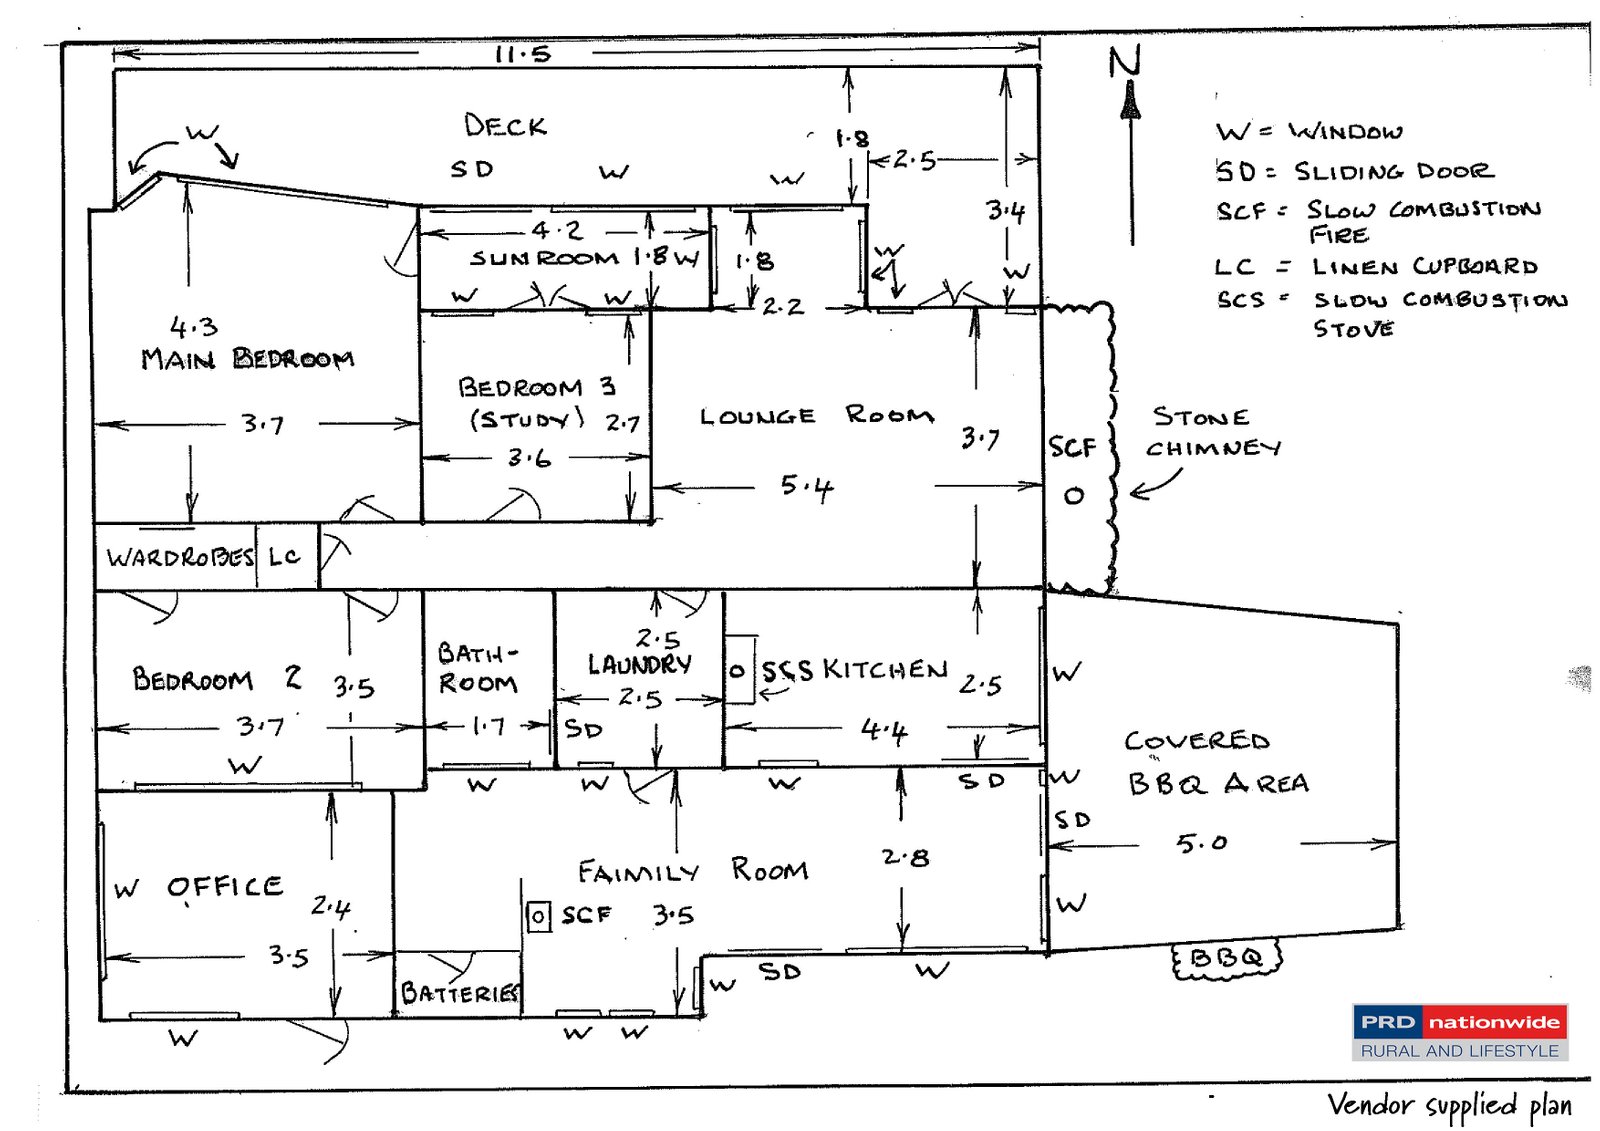 11.5
N
DECK
W
SD
W
W
1.8
2.5
3.4
W = WINDOW
SD = SLIDING DOOR
SCF = SLOW COMBUSTION
FIRE
LC = LINEN CUPBOARD
SCS = SLOW COMBUSTION
STOVE
4.2
SUNROOM 1.8 W
1.8
W
W
W
W
2.2
4.3
MAIN BEDROOM
3.7
BEDROOM 3
(STUDY) 2.7
3.6
LOUNGE ROOM
3.7
5.4
SCF
STONE
CHIMNEY
WARDROBES
LC
BEDROOM 2
3.5
3.7
W
BATH-
ROOM
1.7
W
2.5
LAUNDRY
2.5
SD
W
SCS KITCHEN
2.5
4.4
W
SD
W
W
SD
W
COVERED
BBQ AREA
5.0
BBQ
W OFFICE
2.4
3.5
W
BATTERIES
FAIMILY ROOM
SCF
3.5
2.8
W
W
W
SD
W
PRD nationwide
RURAL AND LIFESTYLE
Vendor supplied plan